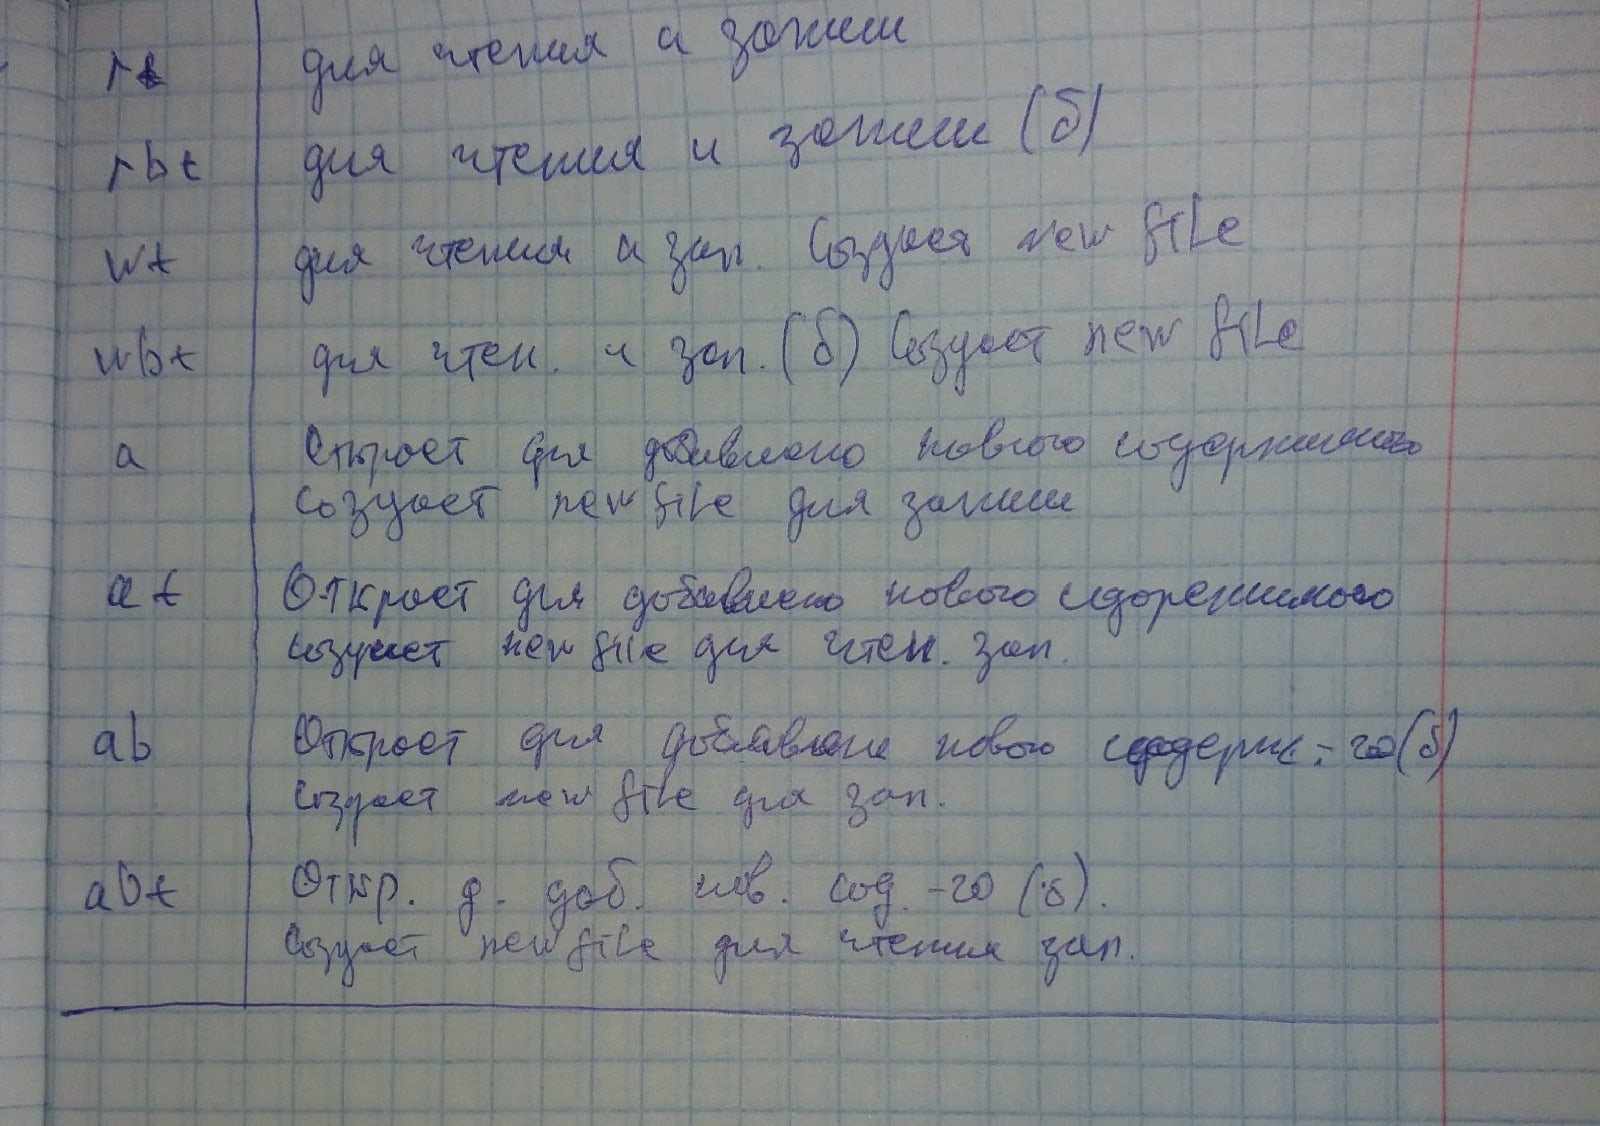 r+ для чтения и записи
rb+ для чтения и записи (б)
w+ для чтения и зап. Создает new file
wb+ для чтен. и зап. (б) Создает new file
a Откроет для добавлено нового содержимого
Создает new file для записи
a+ Откроет для добавлено нового сдорежимого
создает new file для чтен. зап.
ab Откроет для добавлени нового содерж-го (б)
создает new file для зап.
ab+ Откр. д. доб. нов. сод-го (б).
Создает new file для чтения зап.